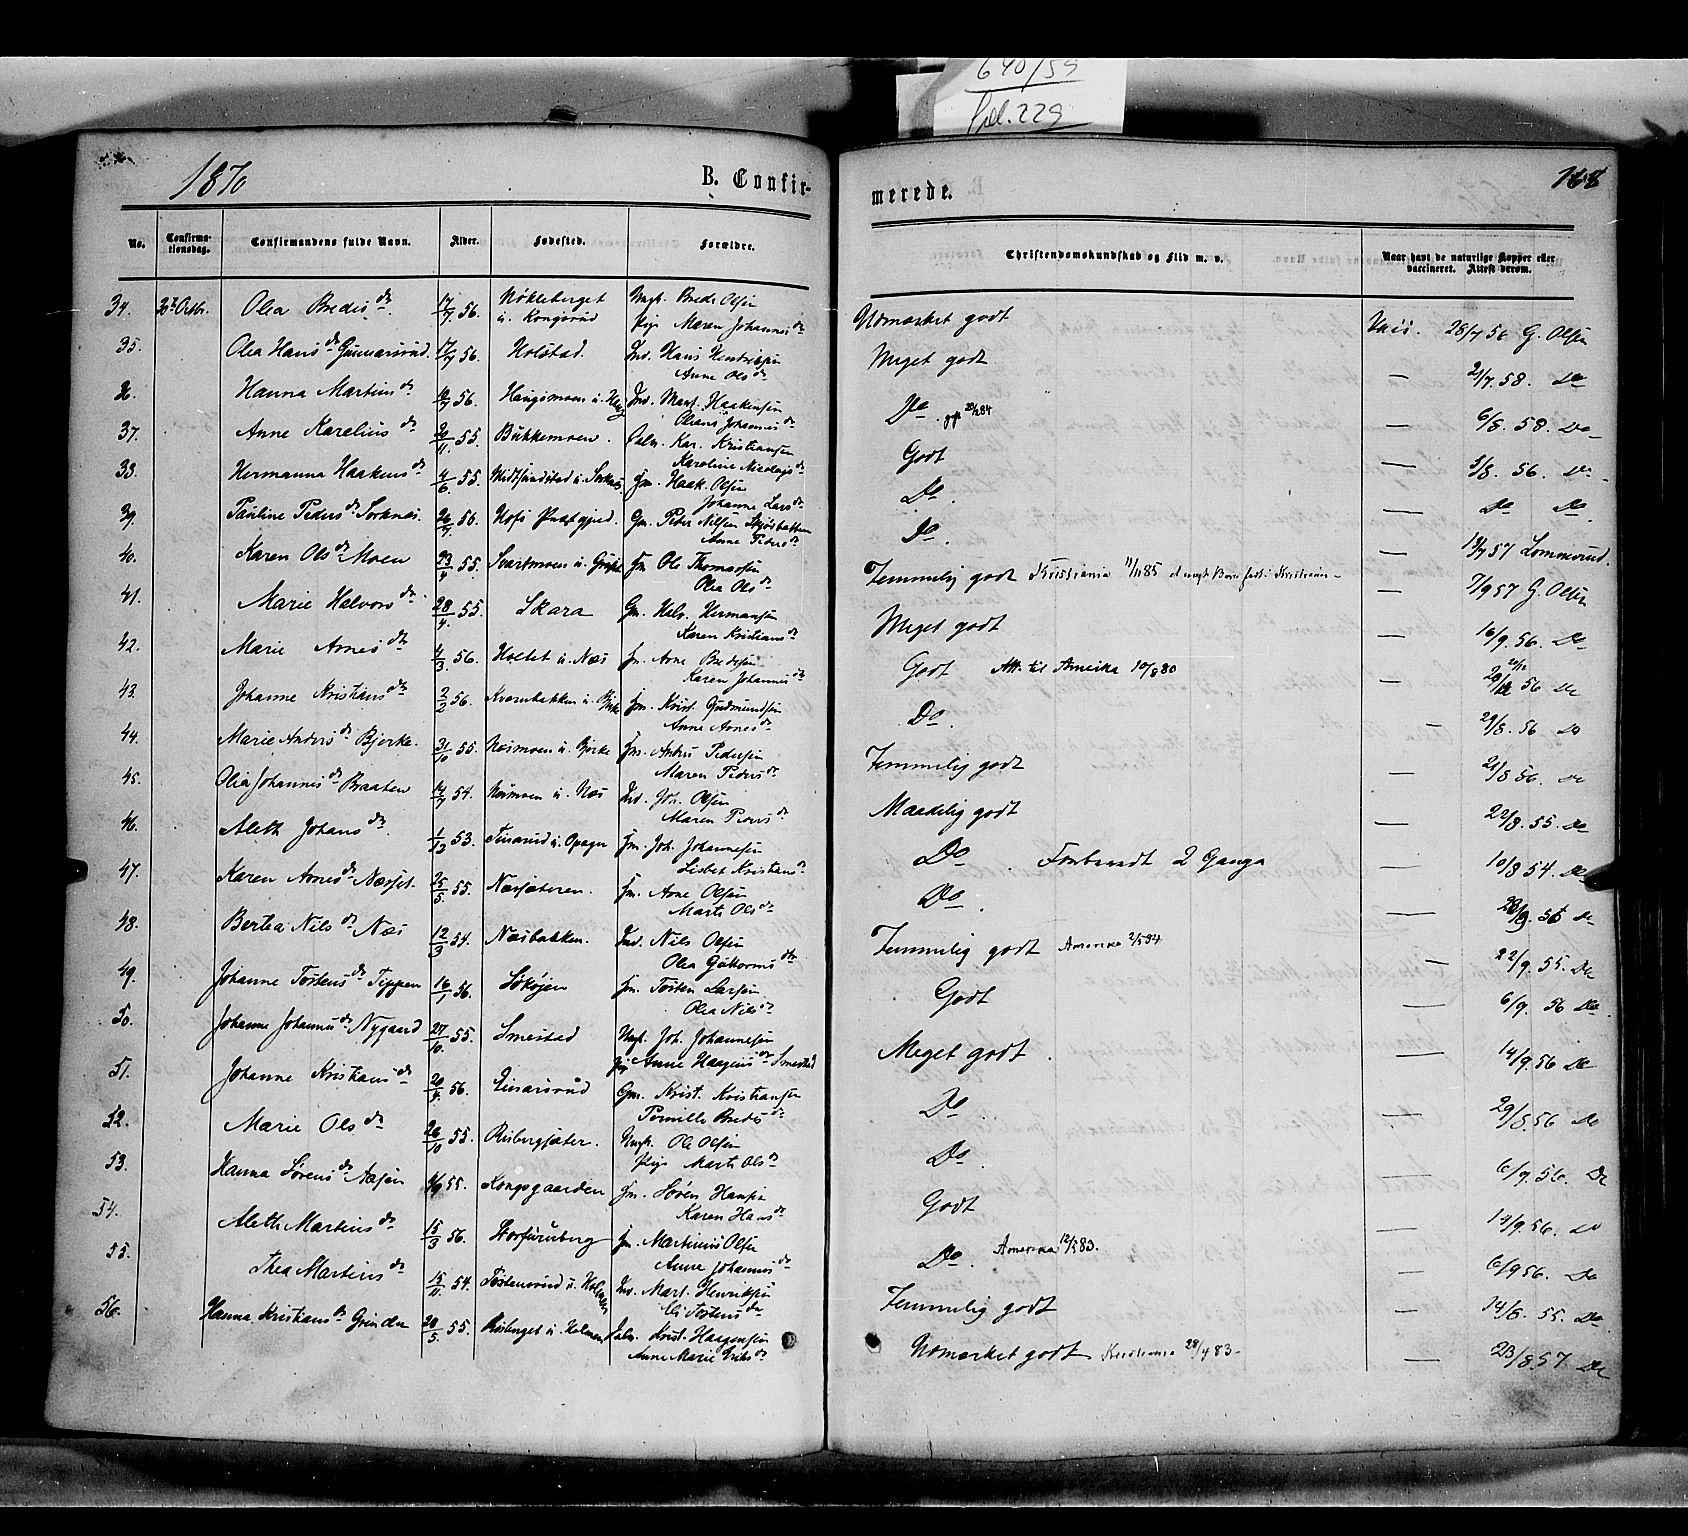 640/59
fol. 229
1870
B. Confir-
merede.
168
No.
Confirma-
tionsdag.
Confirmandens fulde Navn.
Alder.
Fødested.
Forældre.
Christendomskundskab og Flid m. v.
Naar havt de naturlige Kopper eller
vaccineret. Attest derom.
34. Octbr. Olea Bredesdr. 17/7 56. Nökleberget
u. Kongsrud Ungk. Brede Olsen
Pige Maren Johannesdr Udmærket godt Vacc. 28/7 56 G. Olsen
35. Olea Hansdr Gunnarsrud. 17/7 56. Holstad. Ind. Hans Henriksen
Anne Olsdr Meget godt — 21/7. 58. Do
36. Hanna Martinsdr 56. Ind. Mart. Haakensen
Oliane Johannesdr Do — 6/8. 58. Do
37. Anne Kareliusdr 55. Bukkemoen. Kar. Kristiansen
Karoline Nicolaysdr Godt — 3/8. 56. Do
38. Hermanna Haakensdr 4/6 55. Haak. Olsen
Johanne Larsdr Do — Do Do
39. Pauline Pedersdr Sorknæs. Hofs Præstgjed. Gm. Peter Nilsen
Anne Pedersdr Do. — 57 Lommerud.
40. Karen Olsdr Moen 23/4 55. Svartmoen u. Fm. Ole Thomassen
Olea Olsdr Temmelig godt Kristiania 11/11 85 — 7/9 57 G. Olsen
41. Marie Halvorsdr 28/4. 55. Skara Gm. Halv. Hermansen
Karen Kristiansdr Meget godt — 16/9. 56. Do
42. Marie Arnesdr 4/3. 56. Holtet u. Næs Fm. Arne Bredesen
Karen Johannesdr Godt Att. til Amerika 10/8 80 — 56 Do
43. Johanne Kristiansdr 2/2 56. Kværnbakken u. Fm. Krist. Gudmundsen
Anne Arnesdr Do. — 29/8. 56 Do
44. Marie Andersdr Bjerke. 31/10 55. Næsmoen u. Bjerke Fm. Anders Pedersen
Maren Pedersdr Temmelig godt — 21/8 56. Do
45. Olea Johannesdr Braaten 14/7 54. Næsmoen u. Næs Ind. Joh. Olsen
Maren Pedersdr Maadelig godt — 22/8. 55. Do
46. Aleth Johansdr 1/12 53. u. Opager Fm. Joh. Johannesen
Lisbet Kristiansdr Do. Forbrudt 2 Gange — 10/8 54. Do
47. Karen Arnesdr Næsset. 25/5 55. Næssæteren. Fm. Arne Olsen
Marte Olsdr Do. — Do
48. Bertea Nilsdr Næs 12/3 54. Næsbakken. Ind. Nils Olsen
Olea Guttormsdr Temmelig godt Amerika — 22/9. 55. Do
49. Johanne Tostensdr Tippen 16/1 56. Sökojen Fm. Tosten Larsen
Olea Nilsdr Godt — 6/9. 56 Do
50. Johanne Johannesdr Nygaard 27/10. 55. Smestad Ungk. Joh. Johannesen
Pige Anne Haagensdr Smestad Meget godt. — 14/9. 56 Do
51. Johanne Kristiansdr 20/4. 56. Einarsrud Gm. Krist. Kristiansen
Pernille Bredesdr Do. — 29/8. 56 Do
52. Marie Olsdr 26/10 55. Risbergsæter. Ungk. Ole Olsen
Pige Marte Olsdr Do. — 6/9. 56. Do
53. Hanna Sørensdr Aasen 55. Kongsgaarden Fm. Sören Hansen
Karen Hansdr Godt — 14/9. 56. Do
54. Aleth Martinsdr 15/3 56. Storfuruberg Fm. Martinius Olsen
Anne Johannesdr Do. Amerika 12/5 83. — 6/9 56. Do
55. Thea Martinsdr 15/11 54. Tostensrud u. Ind. Mart. Henriksen
Eli Tostensdr Temmelig godt — 14/8. 55. Do
56. Hanna Kristiansdr Grinder 20/5. 55. Risberget u. Krist. Haagensen
Anne Marie Eriksdr Udmærket godt. Kristiania 28/4 83 — 23/8. 57. Do